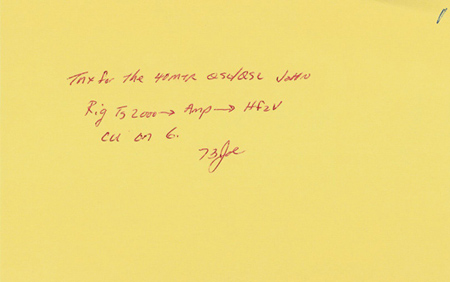 Tnx for the 40mtr QSO/QSL John
Rig TS2000→ Amp → HF2V
CU on 6.
73 Joe